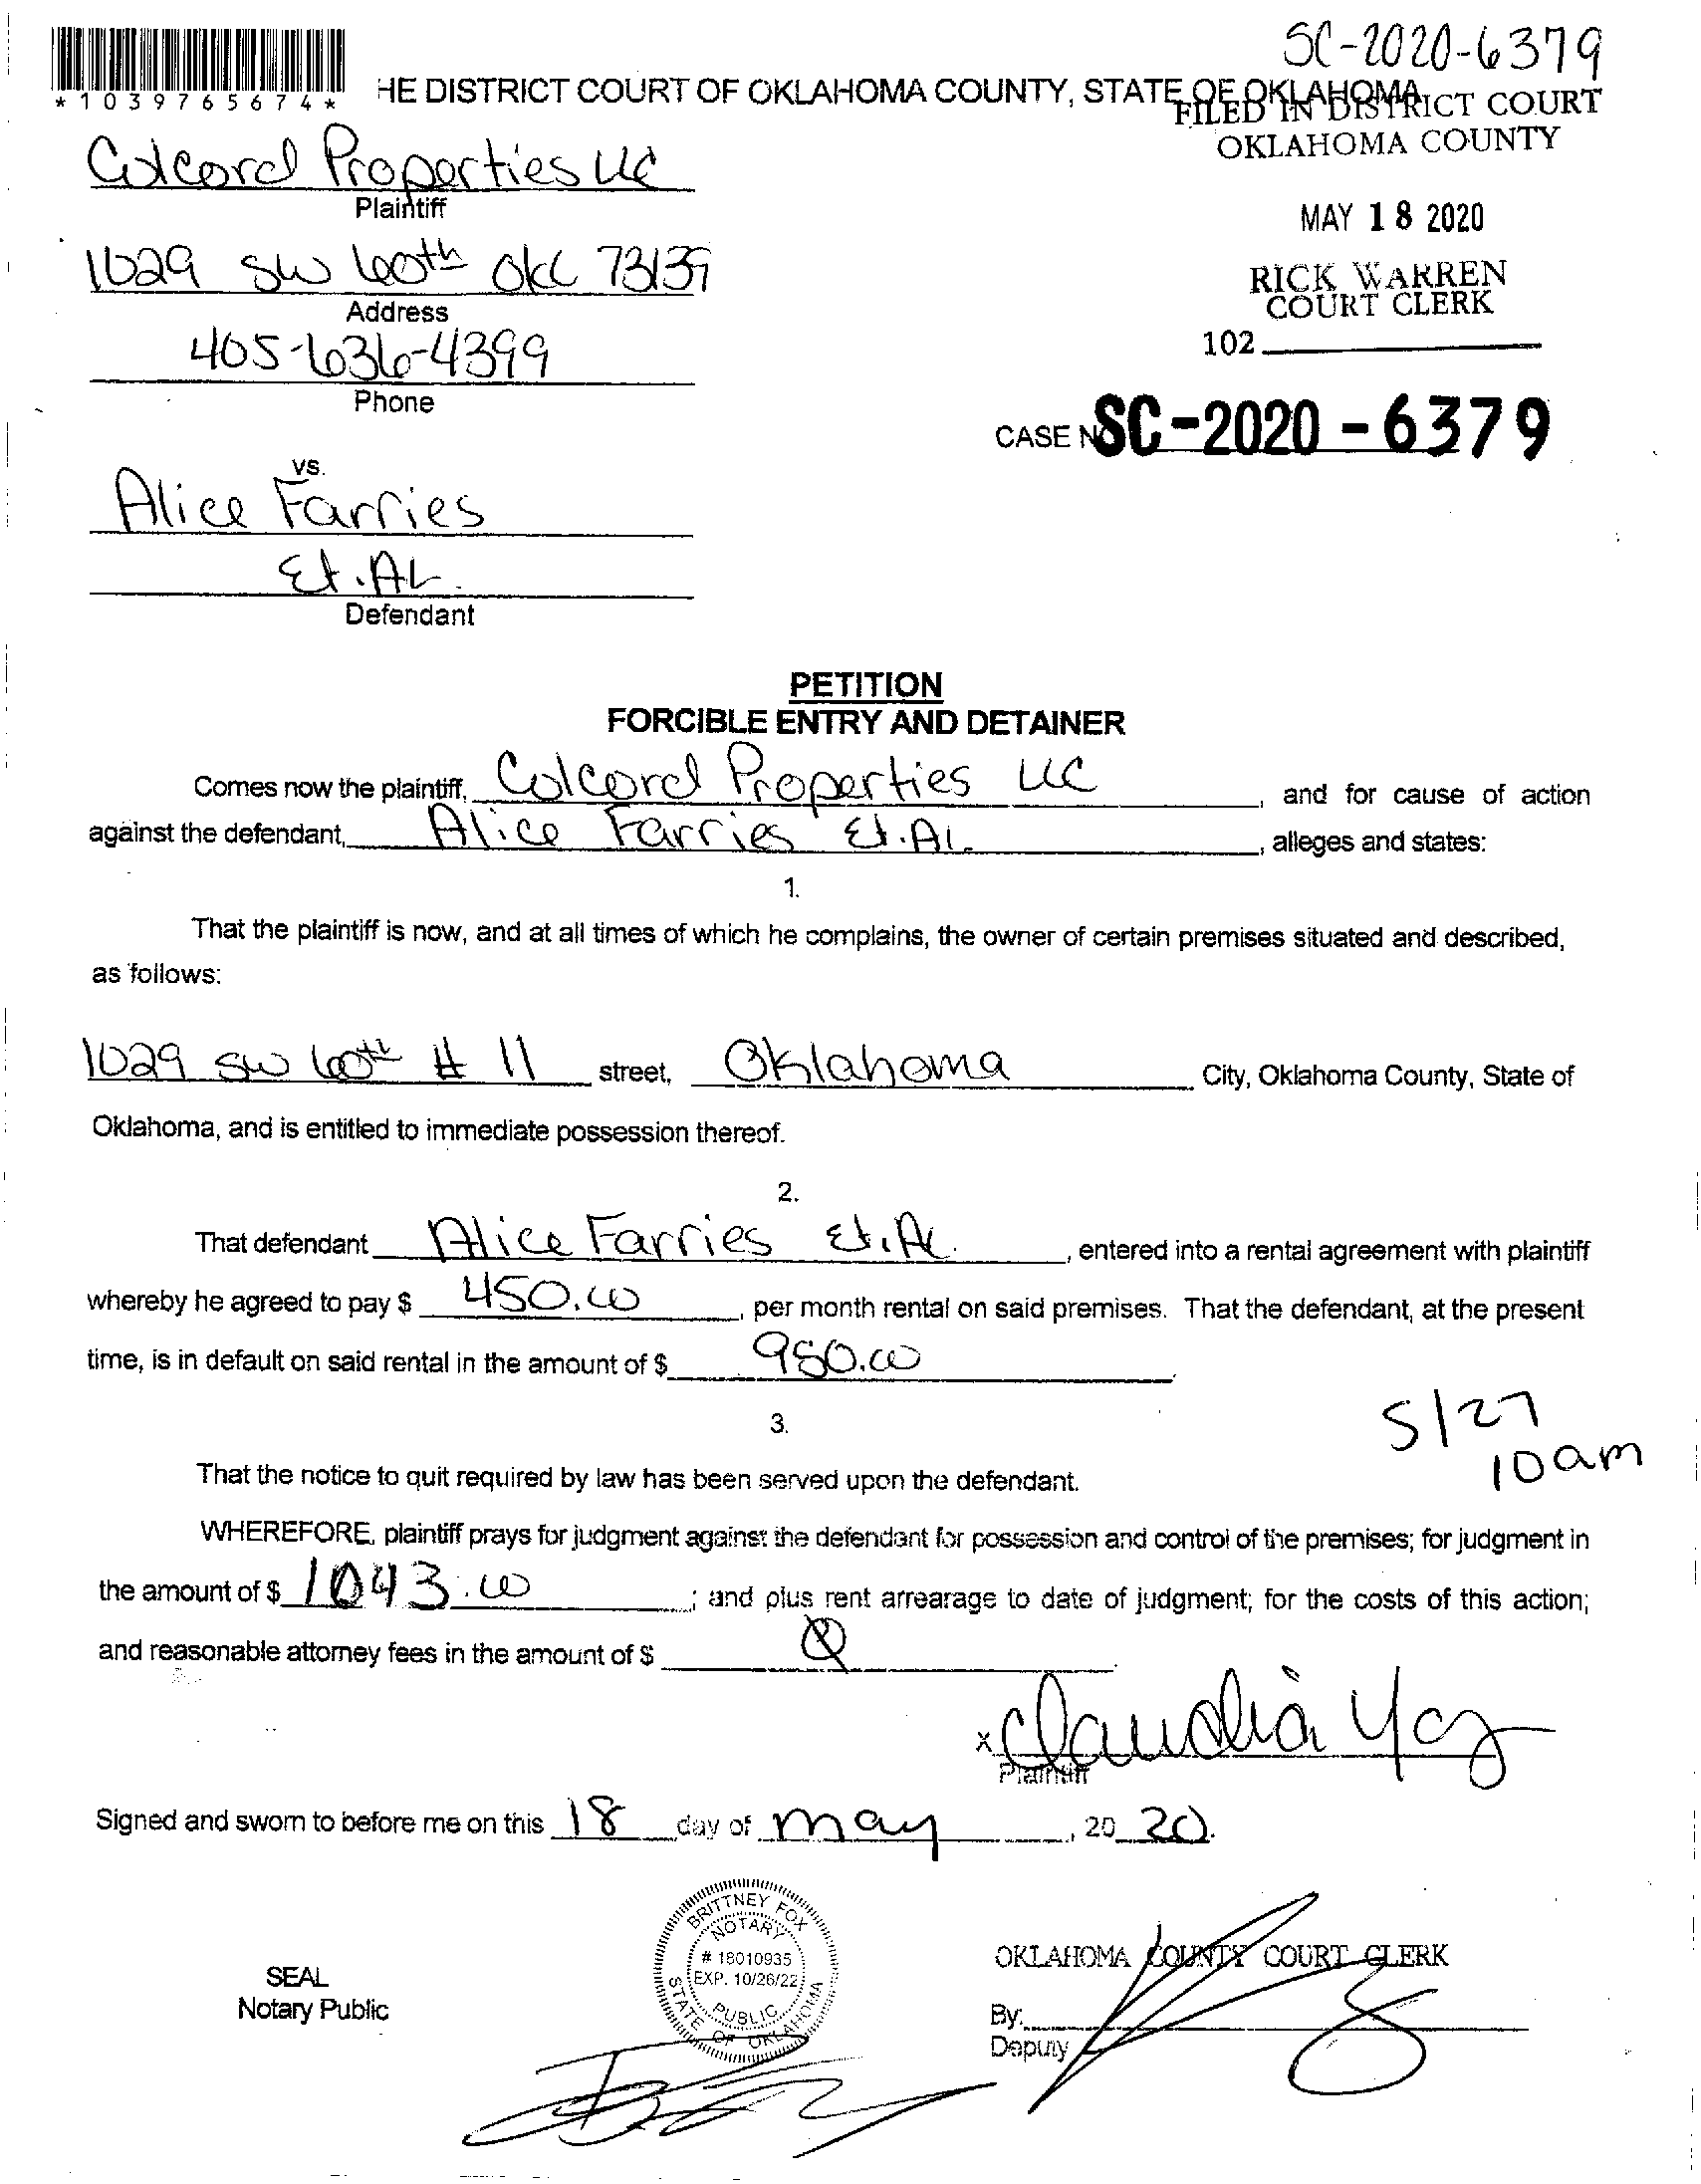 SC-2020-6379
*1039765674*
HE DISTRICT COURT OF OKLAHOMA COUNTY, STATE OF OKLAHOMA
FILED IN DISTRICT COURT
OKLAHOMA COUNTY
Colcord Properties LLC
Plaintiff
MAY 18 2020
1029 SW 60th OKC 73139
Address
RICK WARREN
COURT CLERK
405-636-4399
Phone
102
CASE NO SC-2020-6379
vs.
Alice Farries
Et.AL.
Defendant
PETITION
FORCIBLE ENTRY AND DETAINER
Comes now the plaintiff, Colcord Properties LLC, and for cause of action
against the defendant, Alice Farries Et.AL., alleges and states:
1.
That the plaintiff is now, and at all times of which he complains, the owner of certain premises situated and described,
as follows:
1029 SW 60th # 11 street, Oklahoma City, Oklahoma County, State of
Oklahoma, and is entitled to immediate possession thereof.
2.
That defendant Alice Farries Et.AL., entered into a rental agreement with plaintiff
whereby he agreed to pay $ 450.00, per month rental on said premises. That the defendant, at the present
time, is in default on said rental in the amount of $ 950.00.
3.
5/27
10am
That the notice to quit required by law has been served upon the defendant.
WHEREFORE, plaintiff prays for judgment against the defendant for possession and control of the premises; for judgment in
the amount of $ 1043.00; and plus rent arrearage to date of judgment; for the costs of this action;
and reasonable attorney fees in the amount of $
x Claudia
Plaintiff
Signed and sworn to before me on this 18 day of may, 20 20.
BRITTNEY FOX
NOTARY
# 18010935
EXP. 10/26/22
PUBLIC
STATE OF OKLAHOMA
SEAL
Notary Public
OKLAHOMA COUNTY COURT CLERK
By:
Deputy